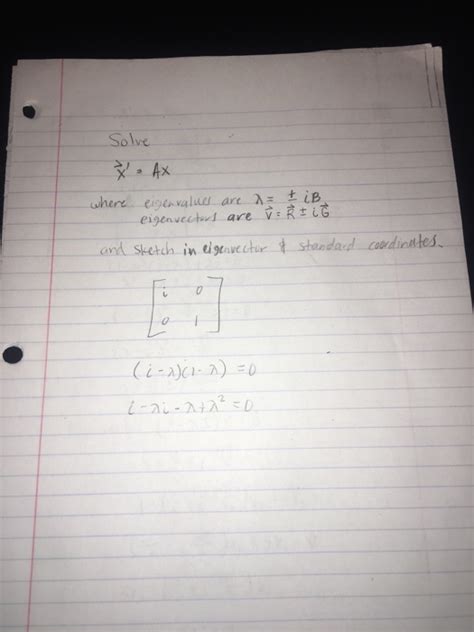 Solve
x⃗' = Ax
where eigenvalues are λ = ± iB
eigenvectors are v⃗ = R⃗ ± i G⃗
and sketch in eigenvector & standard coordinates.
[i 0
0 1]
(i-λ)(1-λ) = 0
i - λi - λ + λ² = 0